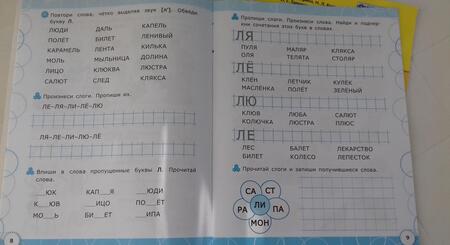 Повтори слова, четко выделяя звук [л']. Обведи
букву Л.
ЛЮДИ ДАЛЬ КАПЕЛЬ
ПОЛЁТ БИЛЕТ ЛЕНИВЫЙ
КАРАМЕЛЬ ЛЕНТА КИЛЬКА
МОЛЬ МЫЛЬНИЦА ДОЛИНА
ЛИЦО КЛЮКВА ЛЮСТРА
САЛЮТ СЛЕД КЛЯКСА
Произнеси слоги. Пропиши их.
ЛЕ-ЛЯ-ЛИ-ЛЁ-ЛЮ
ЛЯ-ЛЕ-ЛИ-ЛЮ-ЛЁ
Впиши в слова пропущенные буквы Л. Прочитай
слова.
__ЮК КАП__Я __ЮДИ
К__ЮВ __ИЦО ПО__ЁТ
МО__Ь БИ__ЕТ __ИПА
8
Пропиши слоги. Произнеси слова. Найди и подчерк-
ни сочетания этих букв в словах.
ЛЯ
ПУЛЯ МАЛЯР КЛЯКСА
ОЛЯ ТЕЛЯТА СТОЛЯР
ЛЁ
КЛЁН ЛЁТЧИК КУЛЁК
МАСЛЁНКА ПОЛЁТ ЗЕЛЁНЫЙ
ЛЮ
КЛЮВ ЛЮБА САЛЮТ
КОЛЮЧКА ЛЮСТРА ПЛЮС
ЛЕ
ЛЕС БАЛЕТ ЛЕКАРСТВО
БИЛЕТ КОЛЕСО ЛЕПЕСТОК
Прочитай слоги и запиши получившиеся слова.
СА СТ
РА ЛИ ПА
МОН
9